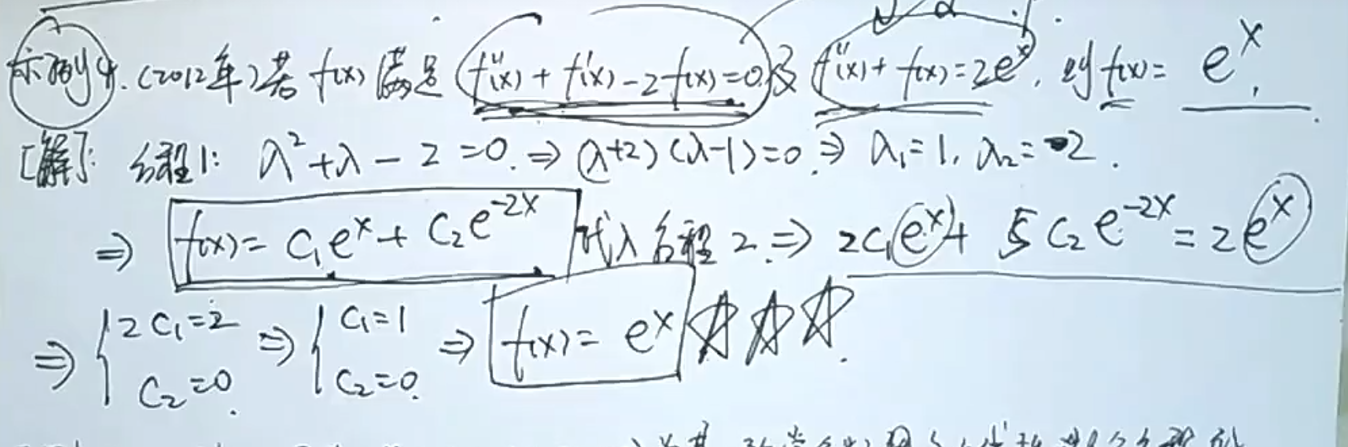 示例4.(2012年)若 f(x) 满足 f''(x) + f'(x) - 2f(x) = 0 及 f''(x) + f(x) = 2e^x, 则 f(x) = e^x.
[解]: 方程1: λ² + λ - 2 = 0. ⇒ (λ+2)(λ-1) = 0. ⇒ λ₁ = 1, λ₂ = -2.
⇒ f(x) = C₁e^x + C₂e^{-2x} 代入方程2. ⇒ 2C₁e^x + 5C₂e^{-2x} = 2e^x
⇒ { 2C₁ = 2 C₂ = 0. ⇒ { C₁ = 1 C₂ = 0. ⇒ f(x) = e^x ☆☆☆.